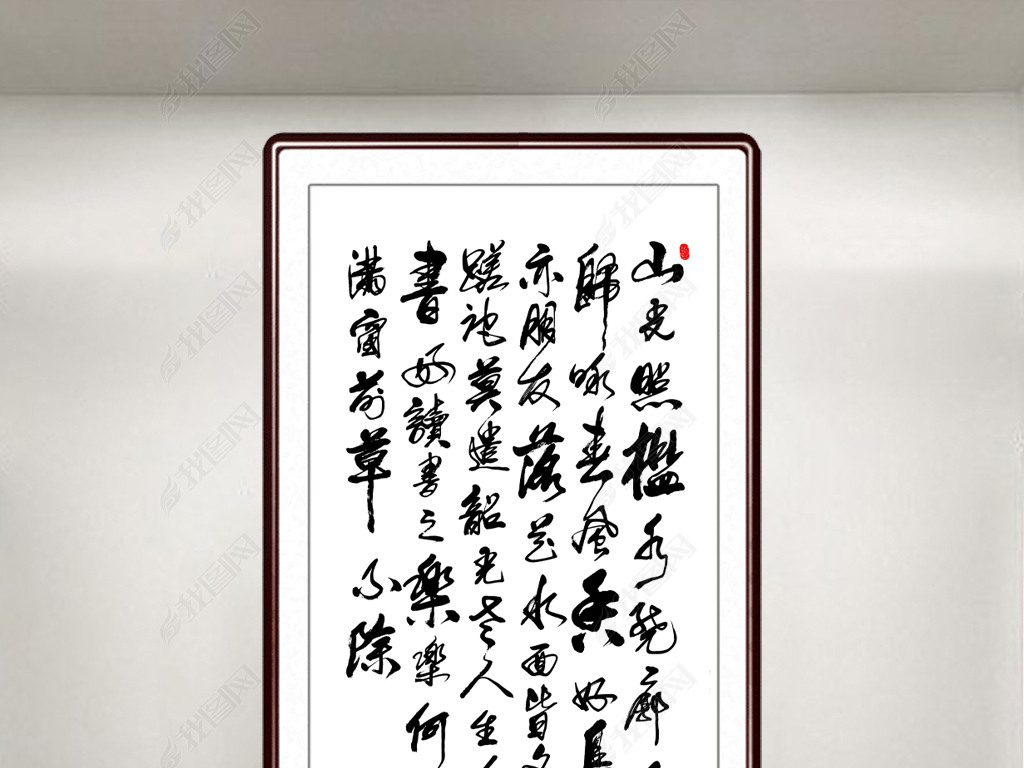 山光照檻水繞廊
歸咏春風香好鳥
亦朋友落花水面皆文
蹉跎莫遣韶光老人生
書好讀書之樂樂何
滿窗前草不除
我图网